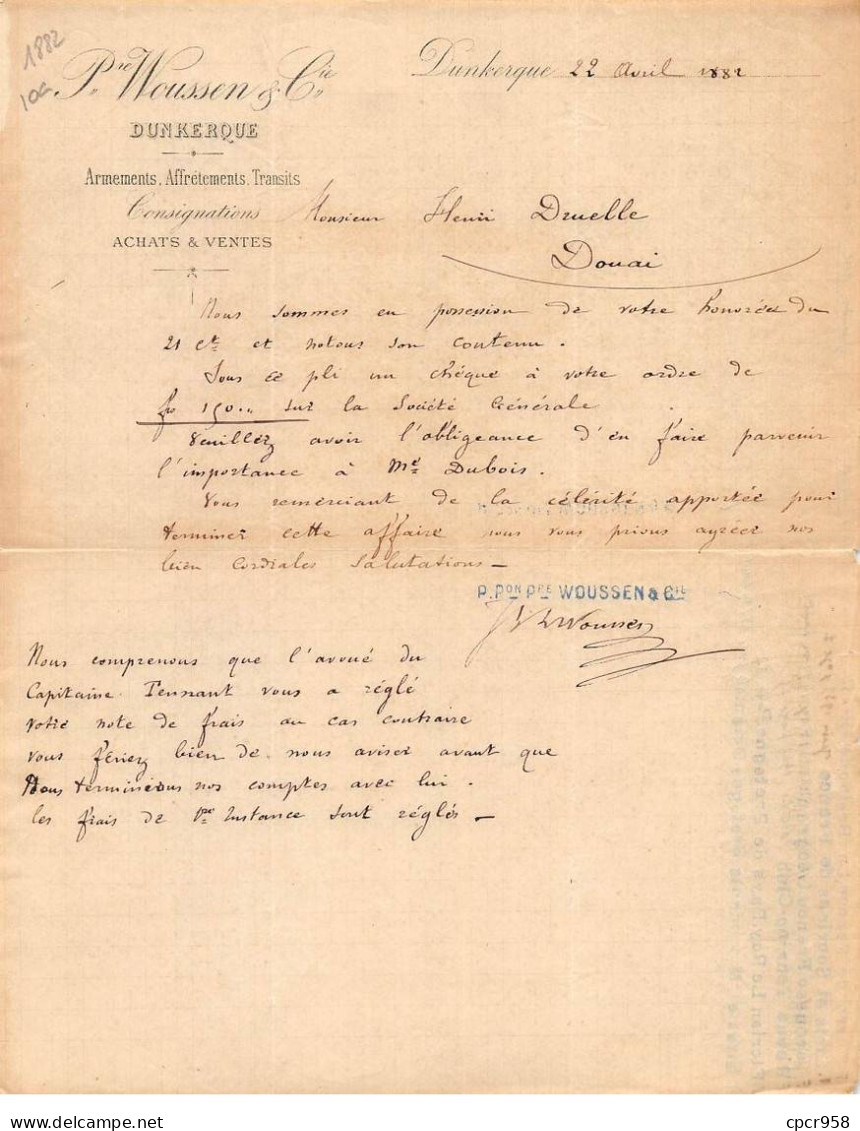 1882
10a
Pre Woussen & Cie
DUNKERQUE
Armements, Affrétements, Transits
Consignations
ACHATS & VENTES
Dunkerque 22 Avril 1882
Monsieur Henri Druelle
Douai
Nous sommes en possession de votre honorée du
21 ct et notons son contenu.
Sous ce pli un chèque à votre ordre de
fs 150.,, sur la Société Générale
Veuillez avoir l'obligeance d'en faire parvenir
l'importance à Me Dubois.
Vous remerciant de la célérité apportée pour
terminer cette affaire nous vous prions agréer nos
bien cordiales salutations —
P. PON PRE WOUSSEN & CIE
Woussen
Nous comprenons que l'avoué du
Capitaine Tennant vous a réglé
votre note de frais au cas contraire
vous feriez bien de nous aviser avant que
Nous terminions nos comptes avec lui.
Les frais de 1re Instance sont réglés —
cpcr958